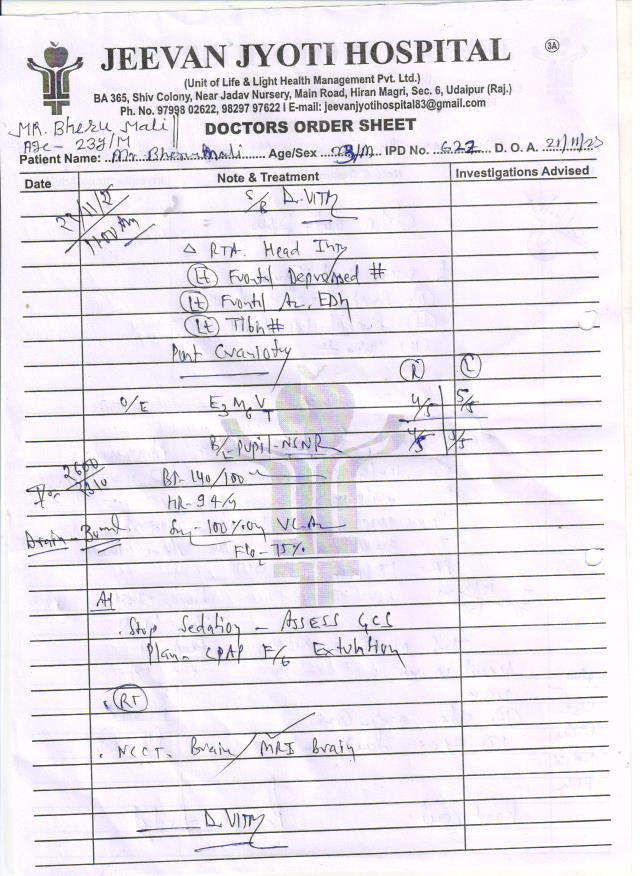 3A
JEEVAN JYOTI HOSPITAL
(Unit of Life & Light Health Management Pvt. Ltd.)
BA 365, Shiv Colony, Near Jadav Nursery, Main Road, Hiran Magri, Sec. 6, Udaipur (Raj.)
Ph. No. 97998 02622, 98297 97622 I E-mail: jeevanjyotihospital83@gmail.com
MR. Bheru Mali
Age - 23y/M
DOCTORS ORDER SHEET
Patient Name: Mr. Bheru Mali Age/Sex 23/M IPD No. 627 D. O. A. 21/11/
Date Note & Treatment Investigations Advised
S/B
Δ RTA. Head Inj
(Lt) Frontal Depressed #
(Lt) Frontal EDH
(Lt) Tibia #
Craniotomy
(R) (L)
O/E E3 M6 VT 4/5 5/5
B/L Pupil - NSNR 4/5
2600
BP - 140/100
HR - 94/
Drain - 100% on VC-
FiO2 - 75%
Stop Sedation - ASSESS GCS
Plan - CPAP F/b Extubation
(RT)
NCCT Brain / MRI Brain